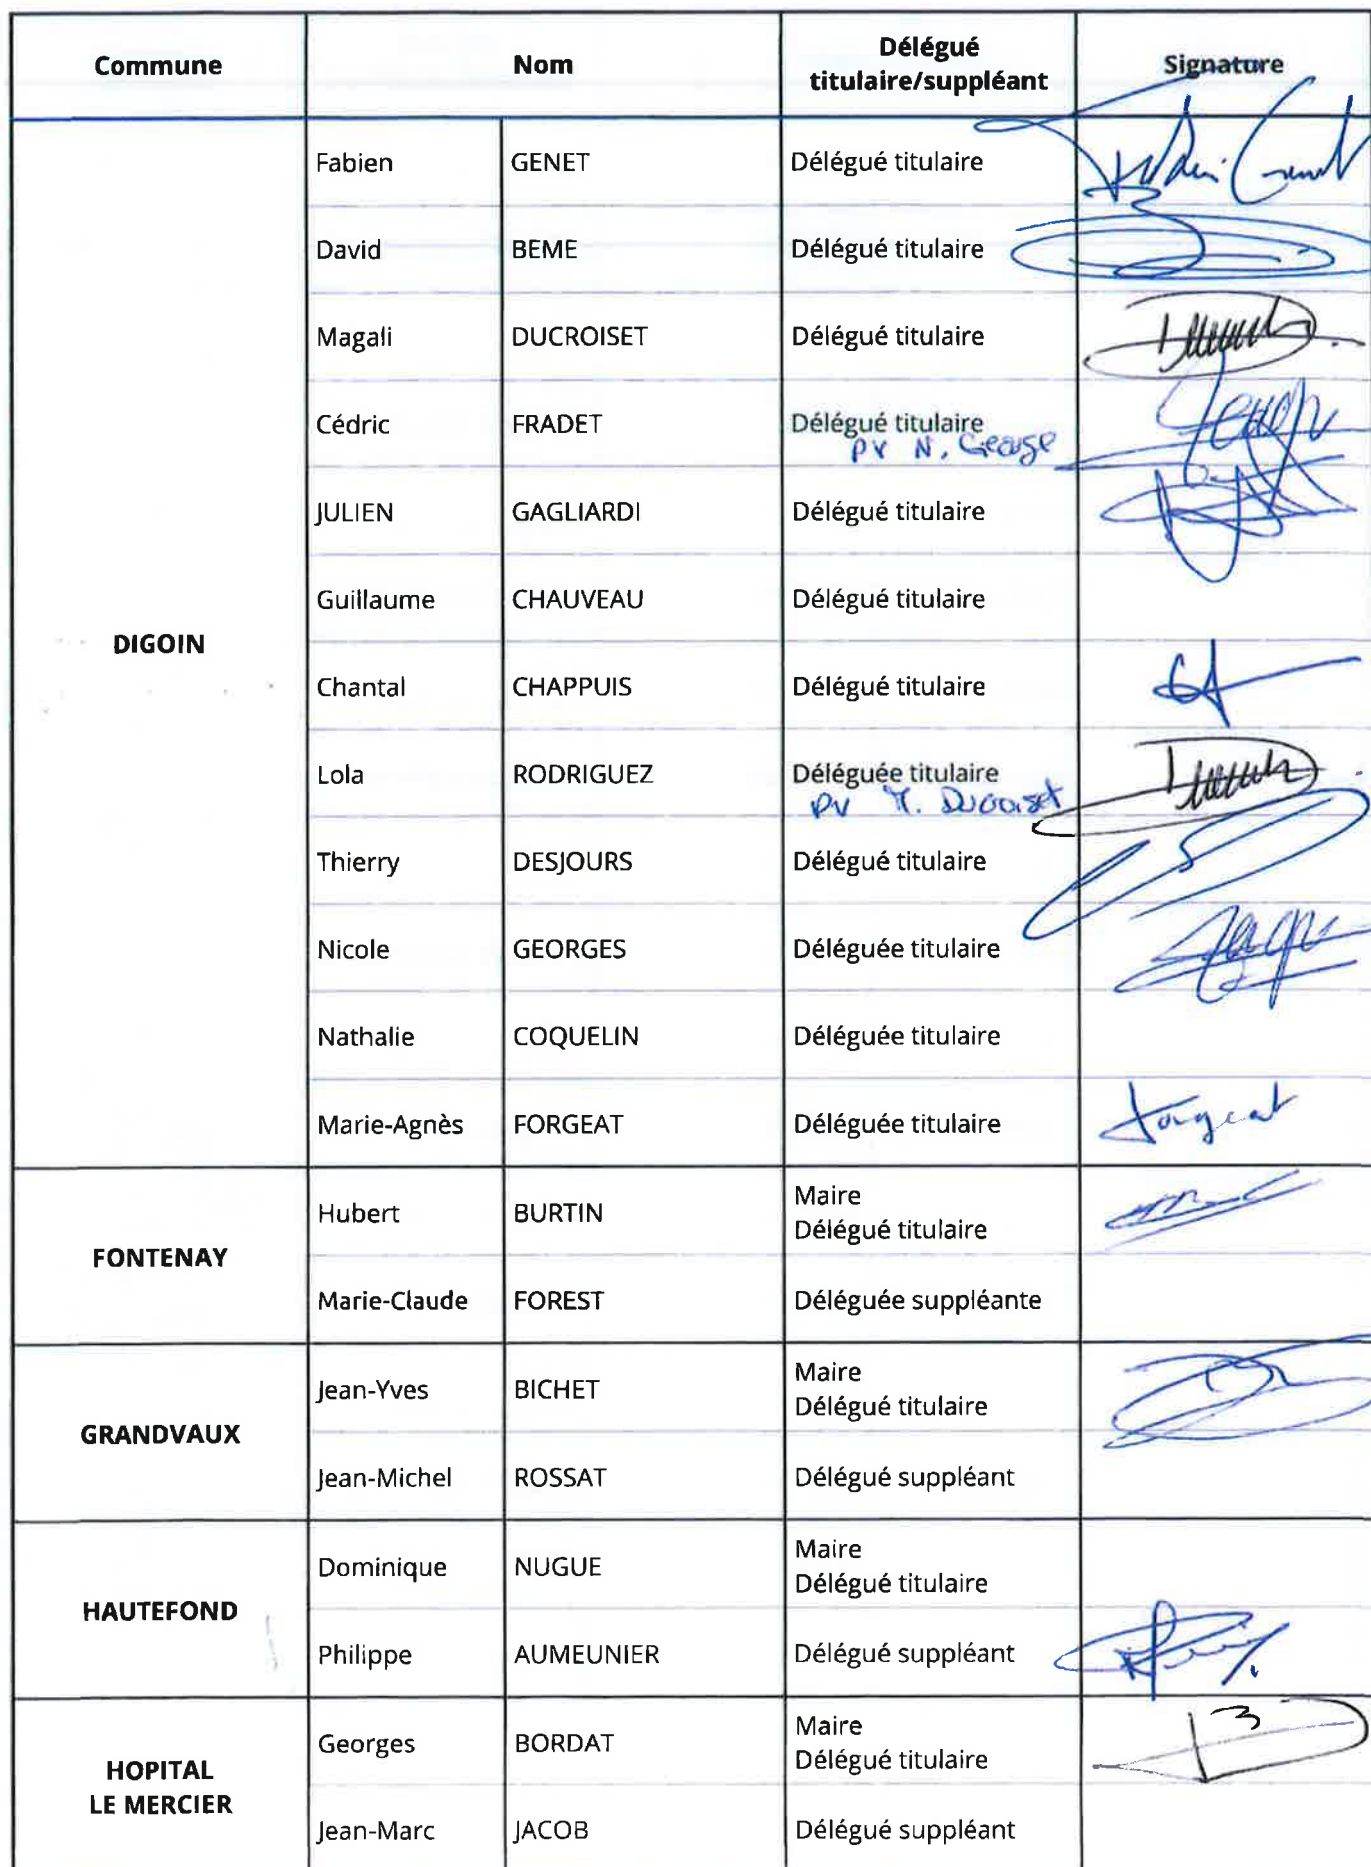 Commune Nom Délégué titulaire/suppléant Signature
DIGOIN
Fabien GENET Délégué titulaire
David BEME Délégué titulaire
Magali DUCROISET Délégué titulaire
Cédric FRADET Délégué titulaire
pv N. George
JULIEN GAGLIARDI Délégué titulaire
Guillaume CHAUVEAU Délégué titulaire
Chantal CHAPPUIS Délégué titulaire
Lola RODRIGUEZ Déléguée titulaire
pv M. Ducroiset
Thierry DESJOURS Délégué titulaire
Nicole GEORGES Déléguée titulaire
Nathalie COQUELIN Déléguée titulaire
Marie-Agnès FORGEAT Déléguée titulaire Forgeat
FONTENAY
Hubert BURTIN Maire
Délégué titulaire
Marie-Claude FOREST Déléguée suppléante
GRANDVAUX
Jean-Yves BICHET Maire
Délégué titulaire
Jean-Michel ROSSAT Délégué suppléant
HAUTEFOND
Dominique NUGUE Maire
Délégué titulaire
Philippe AUMEUNIER Délégué suppléant
HOPITAL
LE MERCIER
Georges BORDAT Maire
Délégué titulaire
Jean-Marc JACOB Délégué suppléant